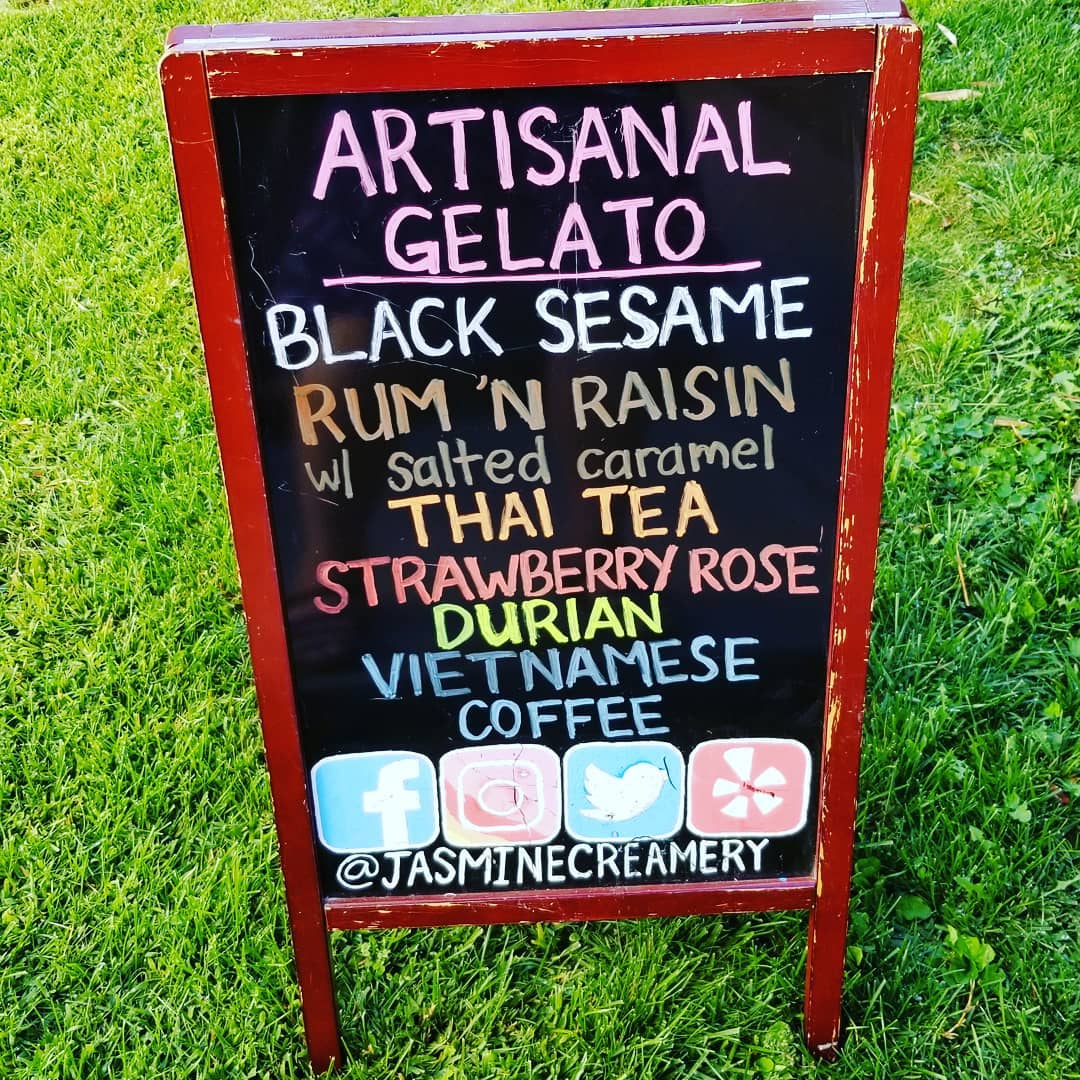 ARTISANAL
GELATO
BLACK SESAME
RUM 'N RAISIN
w/ salted caramel
THAI TEA
STRAWBERRY ROSE
DURIAN
VIETNAMESE
COFFEE
f
@JASMINECREAMERY